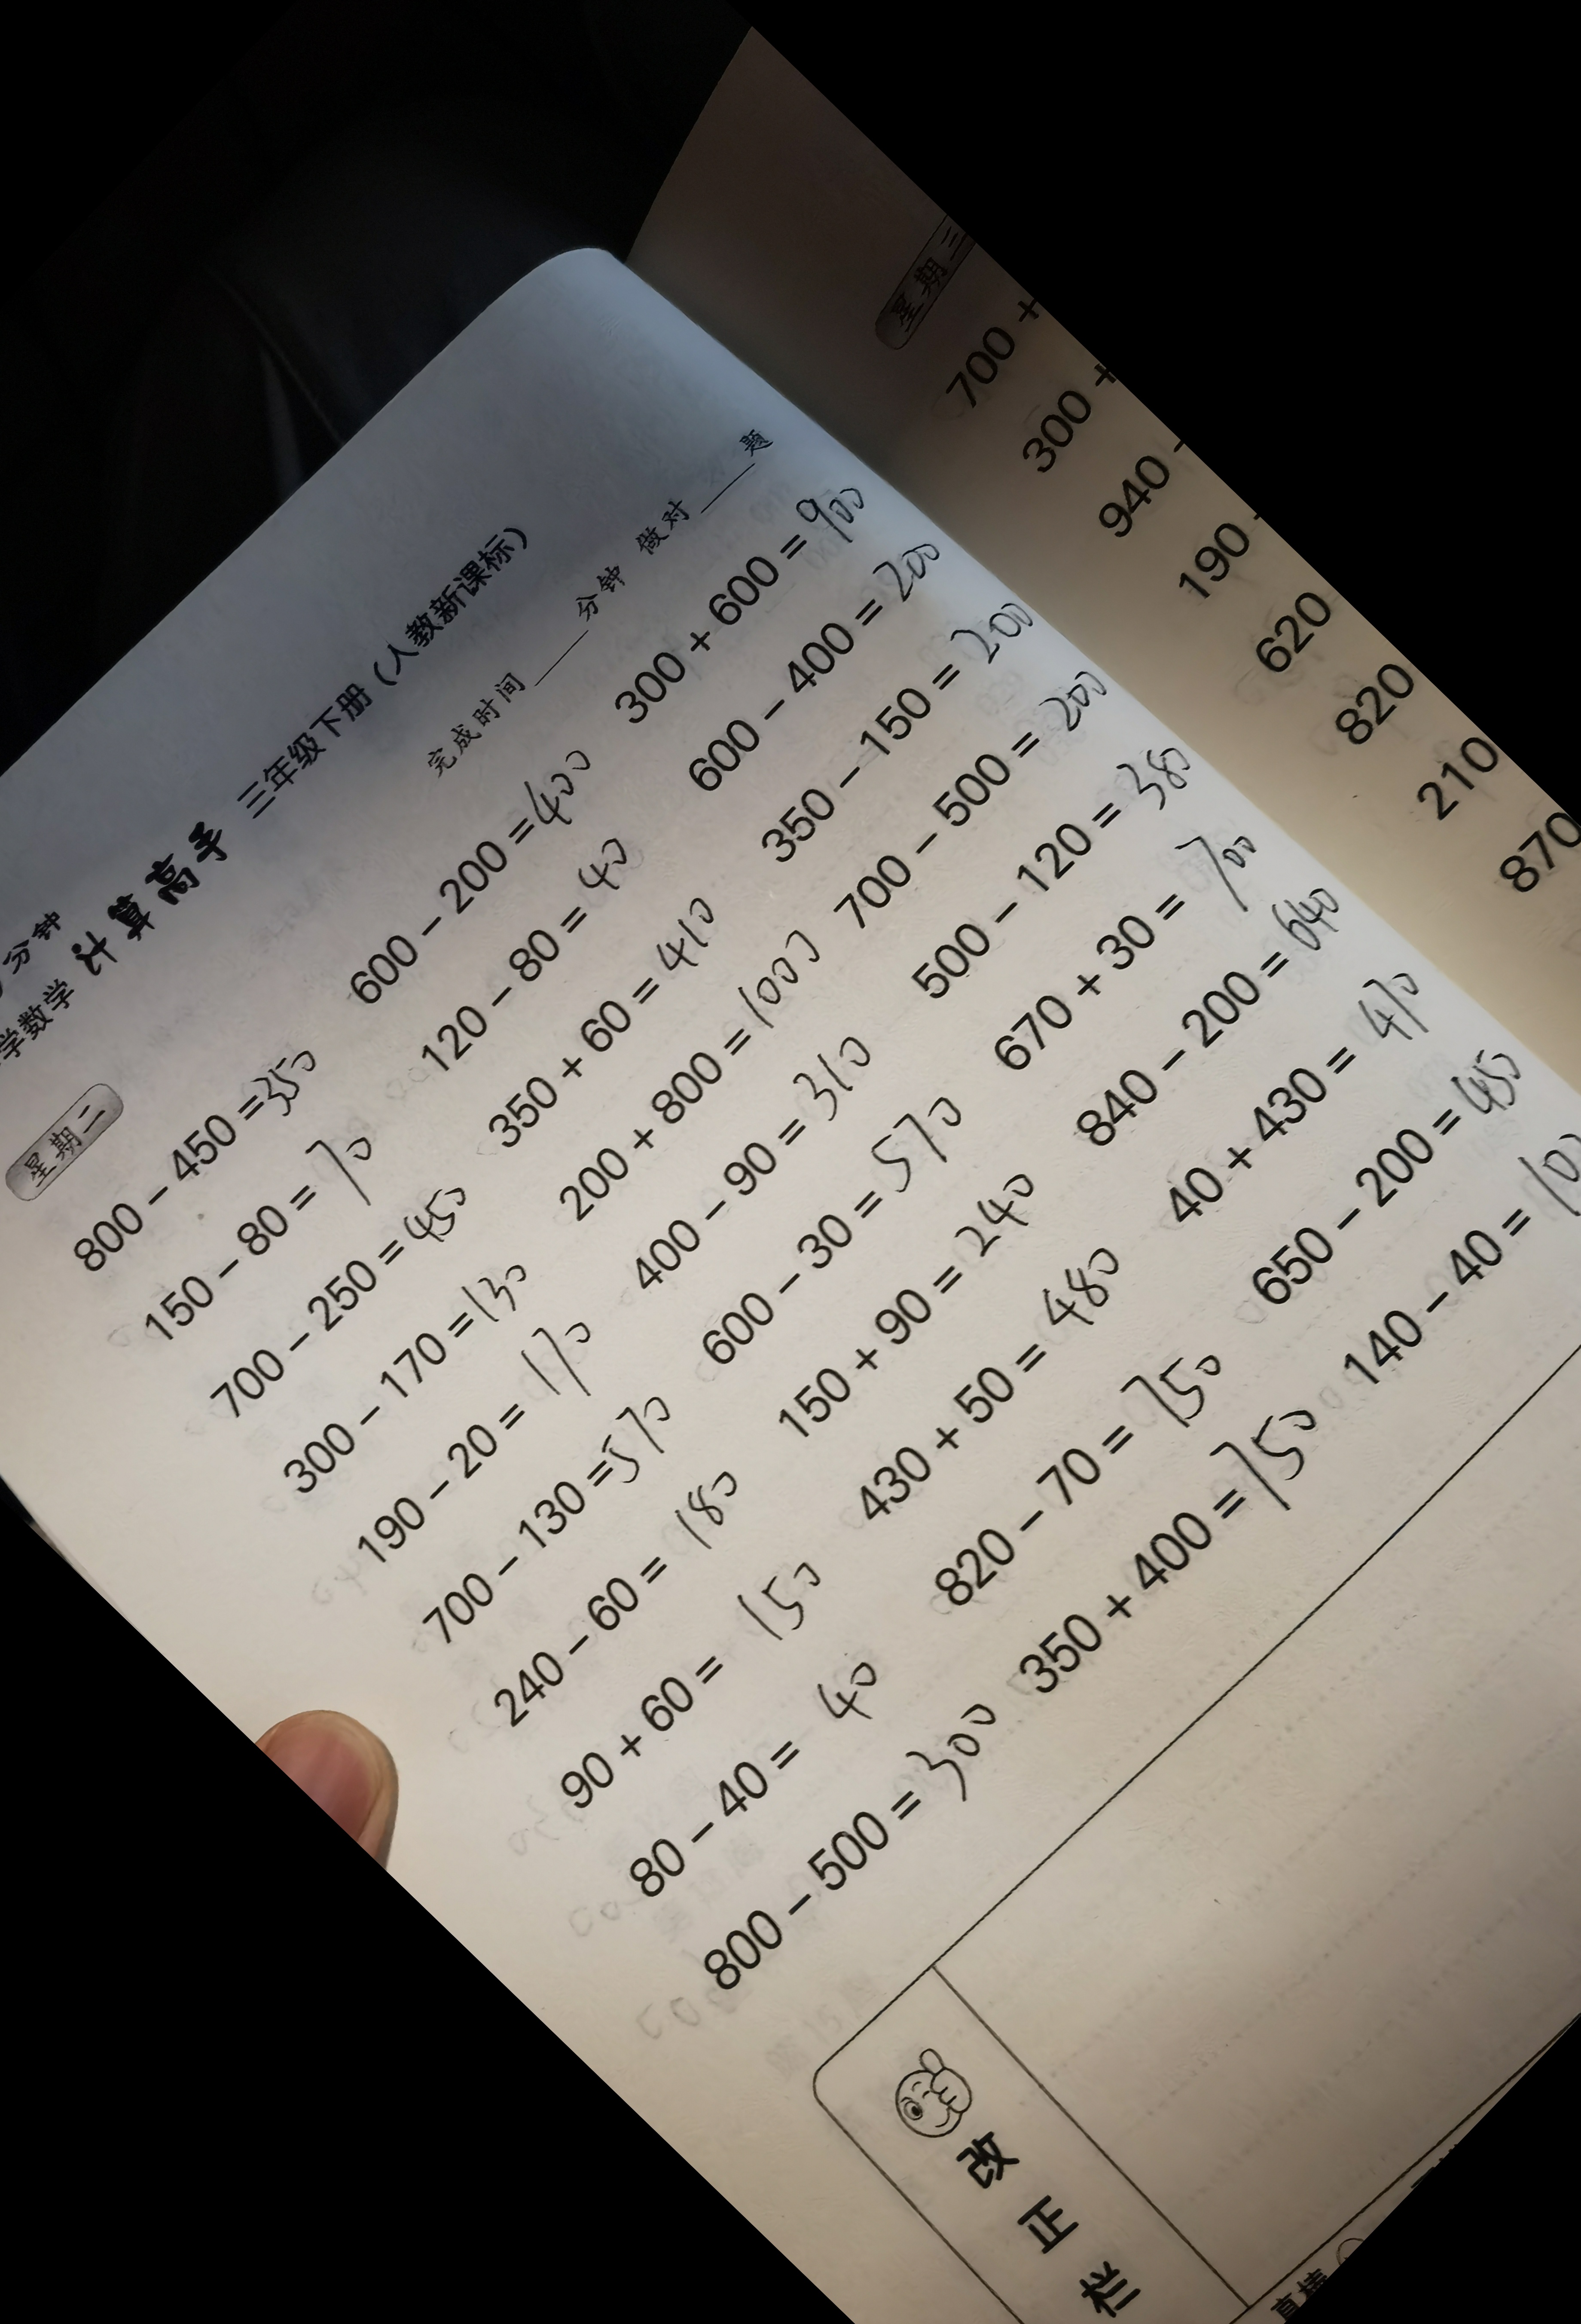 分钟
学数学 计算高手 三年级下册(人教新课标)
星期二 完成时间____分钟 做对____题
800-450=350 600-200=400 300+600=900
150-80=70 120-80=40 600-400=200
700-250=450 350+60=410 350-150=200
300-170=130 200+800=1000 700-500=200
190-20=170 400-90=310 500-120=380
700-130=570 600-30=570 670+30=700
240-60=180 150+90=240 840-200=640
90+60=150 430+50=480 40+430=470
80-40=40 820-70=750 650-200=450
800-500=300 350+400=750 140-40=100
改正栏
星期三
700+
300+
940-
190-
620
820
210
870